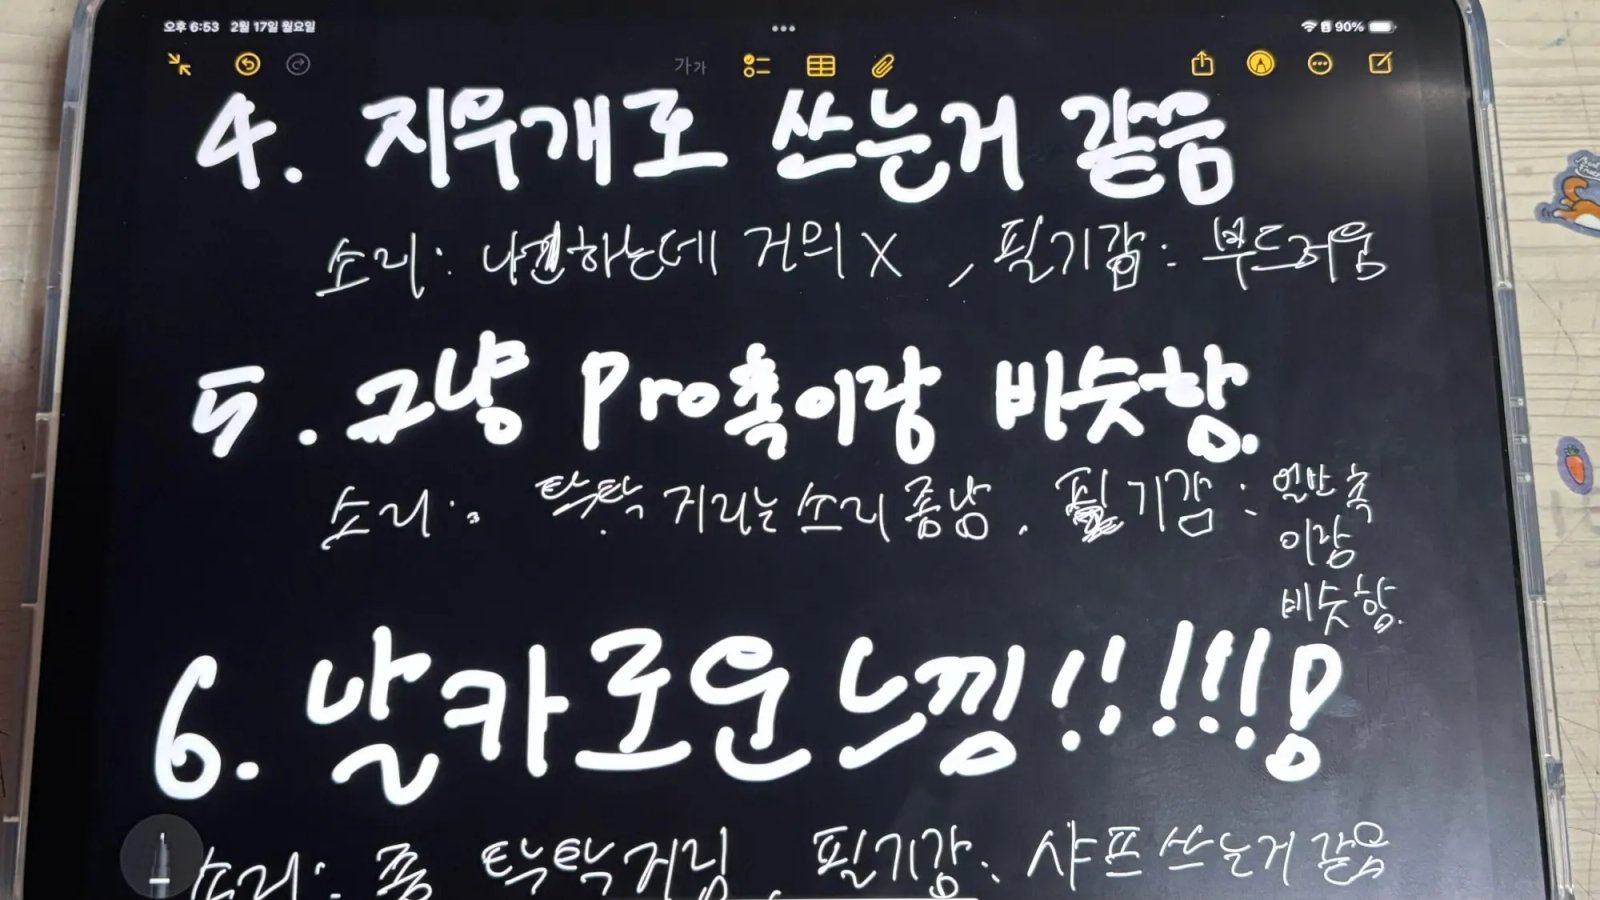 오후 6:53 2월 17일 월요일
90%
가가
4. 지우개로 쓰는거 같음
소리: 나긴하는데 거의 X, 필기감: 부드러움
5. 그냥 Pro촉이랑 비슷함.
소리: 탁탁 거리는 소리 좀 남, 필기감: 일반 촉
이랑
비슷함.
6. 날카로운 느낌!!!!!!
소리: 좀 탁탁거림, 필기감: 샤프 쓰는거 같음